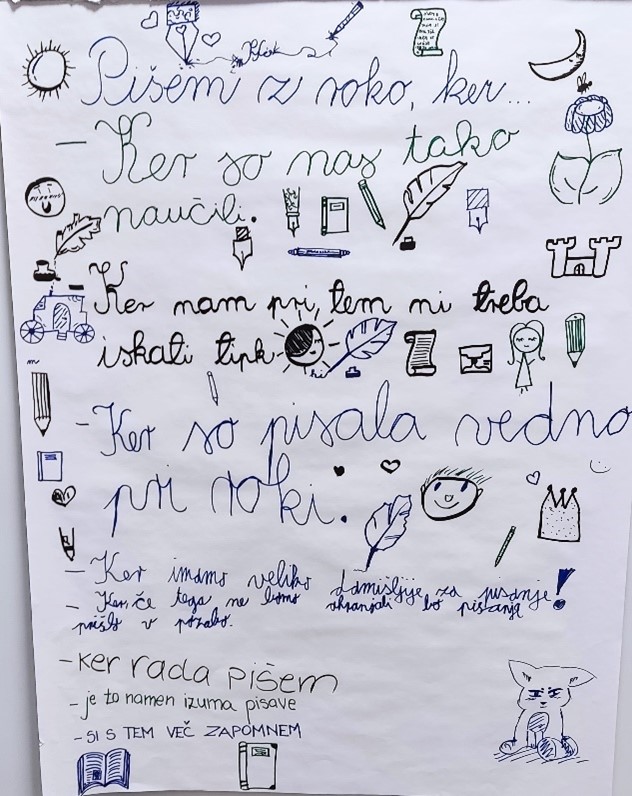 Pišem z roko, ker...
- Ker so nas tako
naučili.
Ker nam pri tem ni treba
iskati tipk
- Ker so pisala vedno
pri roki.
- Ker imamo veliko domišljije za pisanje!
- Ker, če tega ne bomo ohranjali bo pisanje
prišlo v pozabo.
- Ker rada pišem
- je to namen izuma pisave
- SI S TEM VEČ ZAPOMNEM